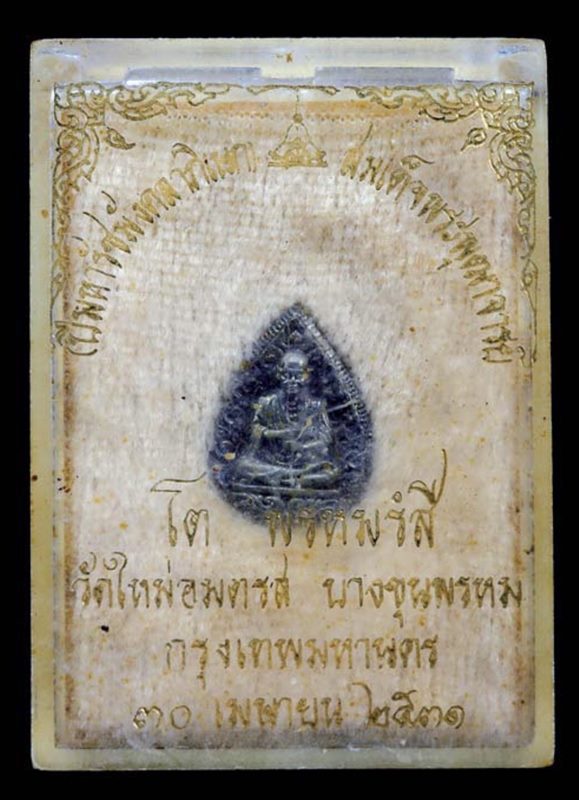 ปีมหารัชมังคลาภิเษก สมเด็จพระพุฒาจารย์
โต พรหมรังสี
วัดใหม่อมตรส บางขุนพรหม
กรุงเทพมหานคร
๓๐ เมษายน ๒๕๓๑